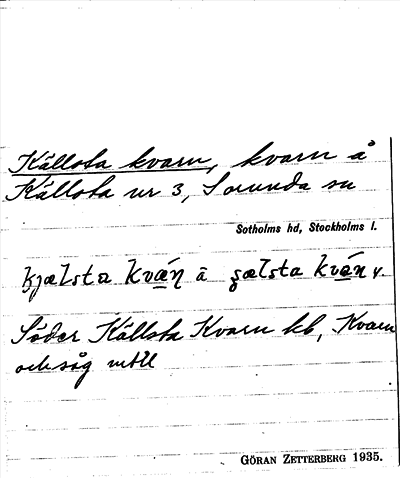 Källsta kvarn, kvarn å
Källsta nr 3, Sorunda sn
Sotholms hd, Stockholms l.
Söder Källsta Kvarn kb, Kvarn
och såg mtbl
GÖRAN ZETTERBERG 1935.